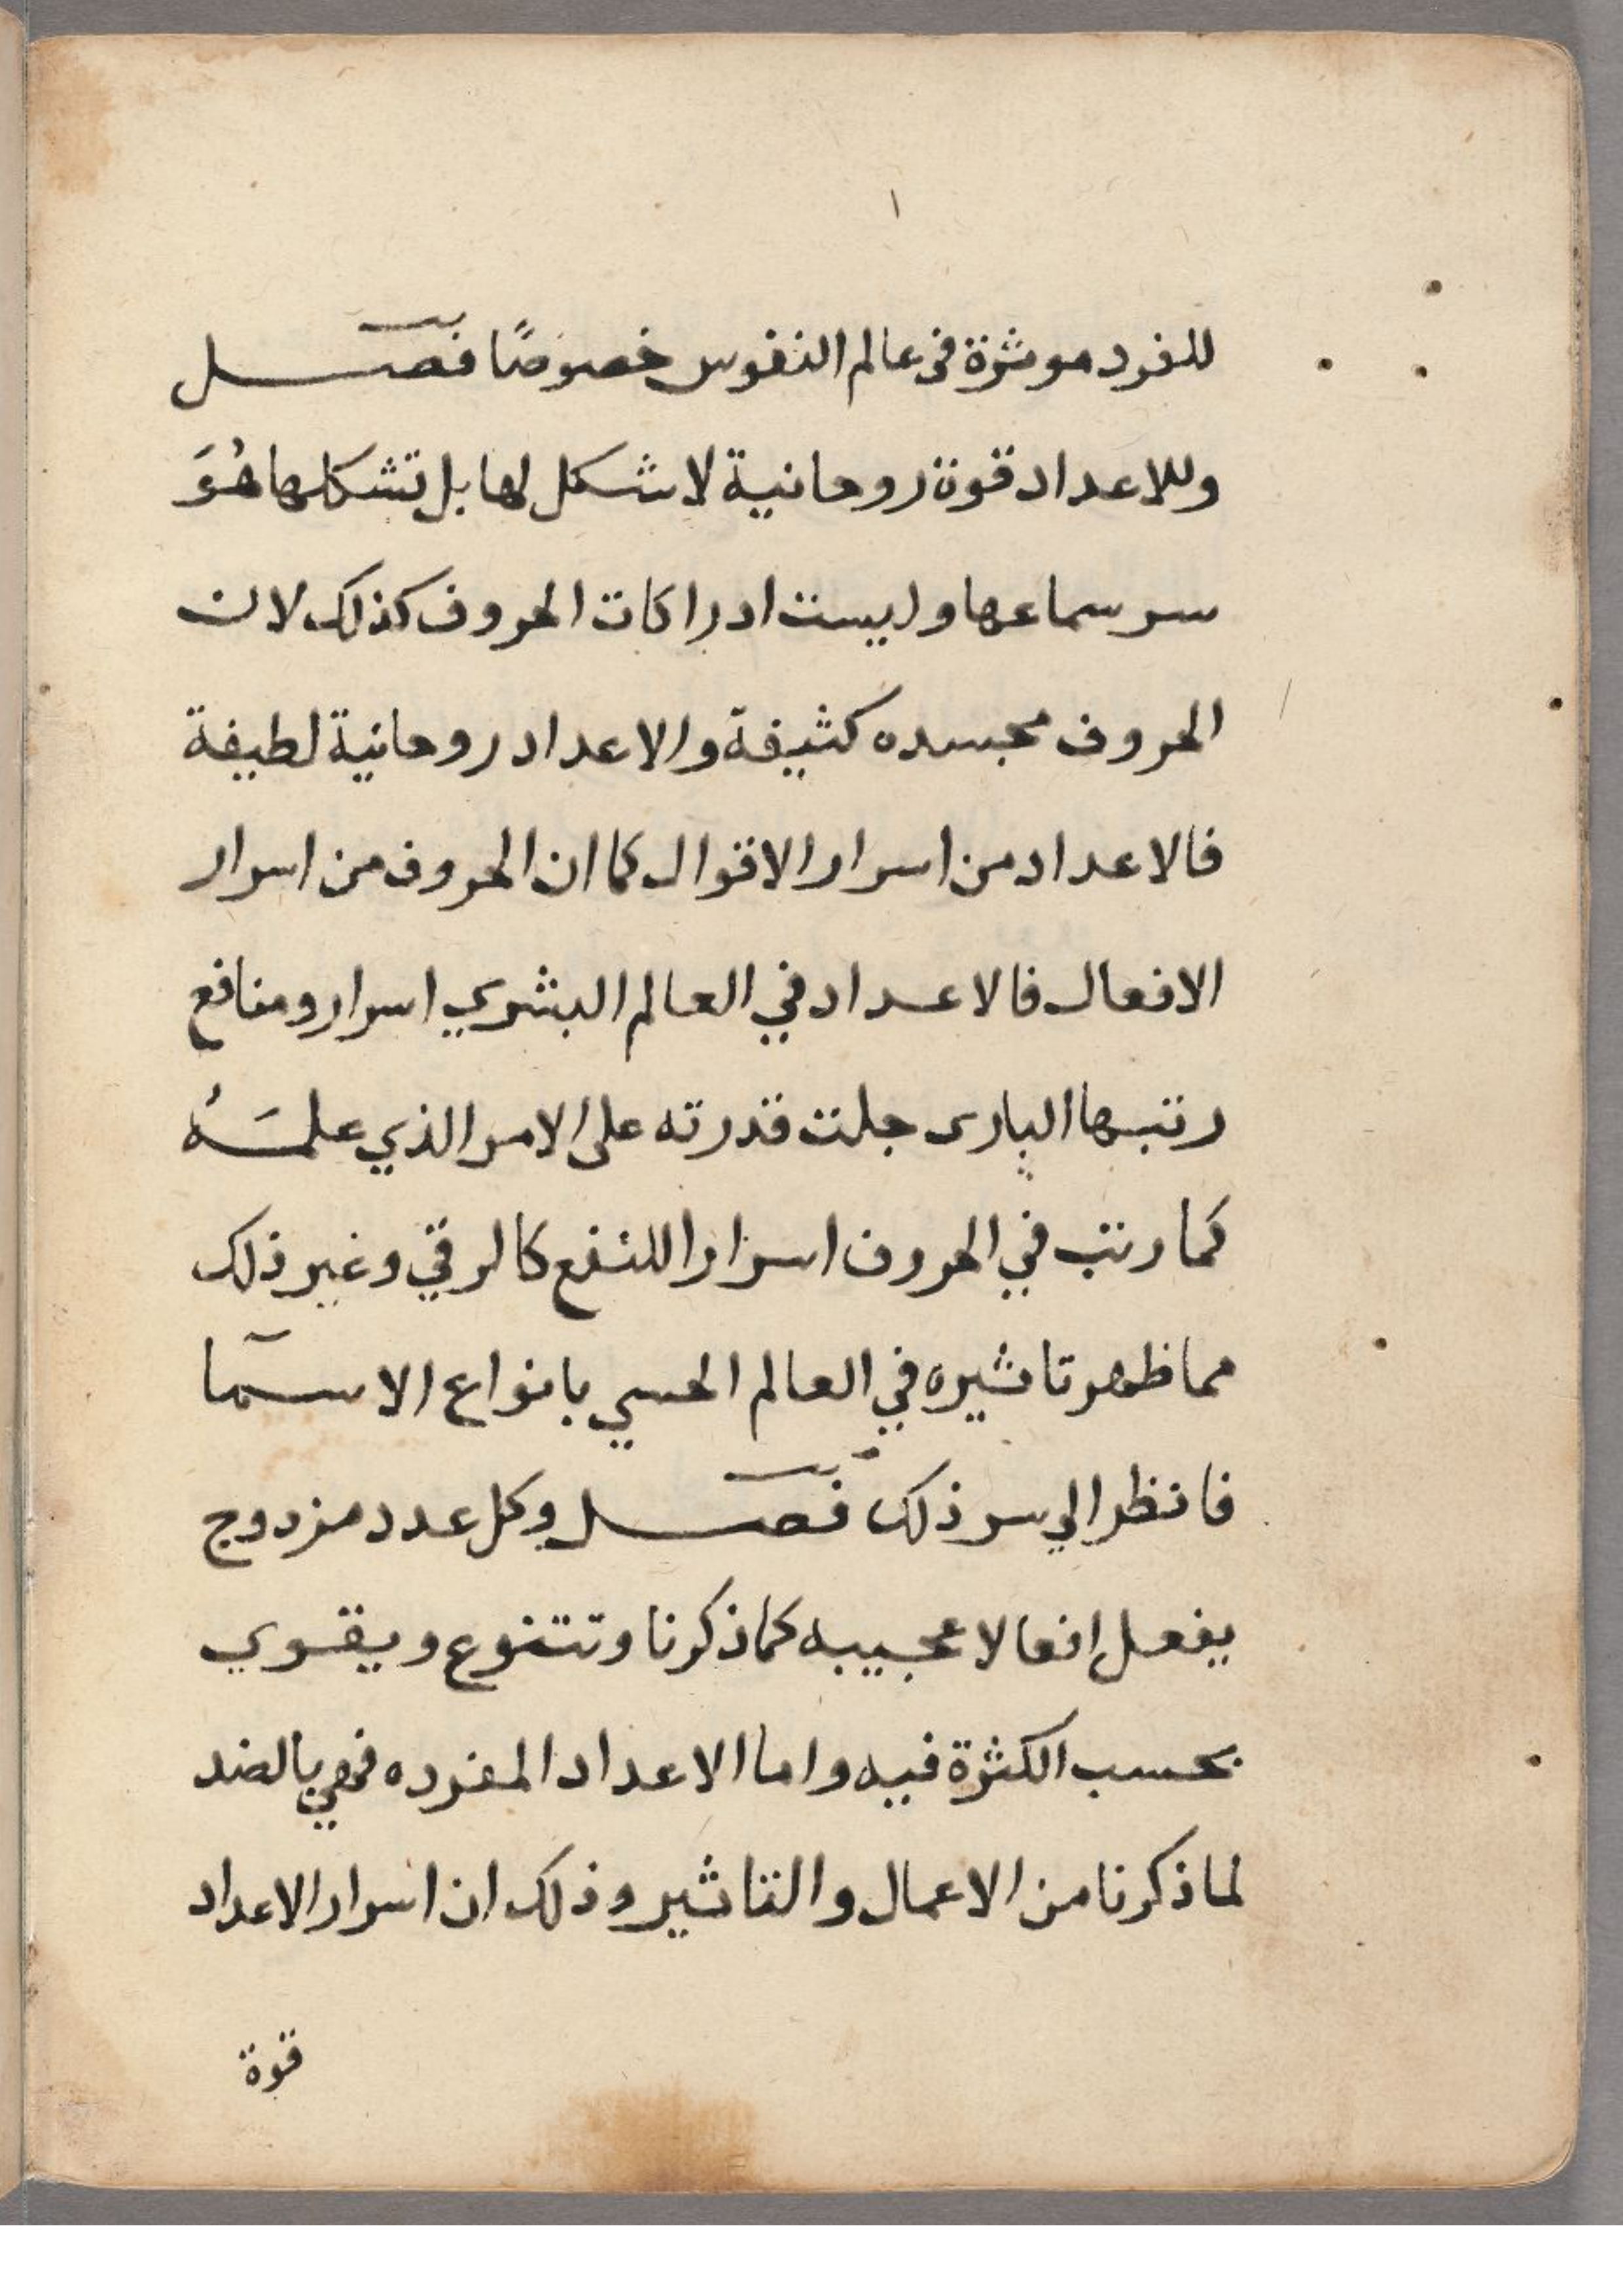 ١
للفرد موثرة في عالم النفوس خصوصًا فصل
وللاعداد قوة روحانية لا شكل لها بل تشكلها هُوَ
سر سماعها وليست ادراكات الحروف كذلك لان
الحروف مجسده كثيفة والاعداد روحانية لطيفة
فالاعداد من اسرار الاقوال كما ان الحروف من اسرار
الافعال فالاعداد في العالم البشري اسرار ومنافع
رتبها الباري جلت قدرته على الامر الذي علمَهُ
كما رتب في الحروف اسرارا للنفع كالرقي وغير ذلك
مما ظهر تاثيره في العالم الحسي بانواع الاسمآ
فانظر الي سر ذلك فصل وكل عدد مزدوج
يفعل افعالا عجيبه كما ذكرنا وتتنوع ويقوي
بحسب الكثرة فيه واما الاعداد المفرده فهي بالضد
لما ذكرنا من الاعمال والتاثير وذلك ان اسرار الاعداد
قوة